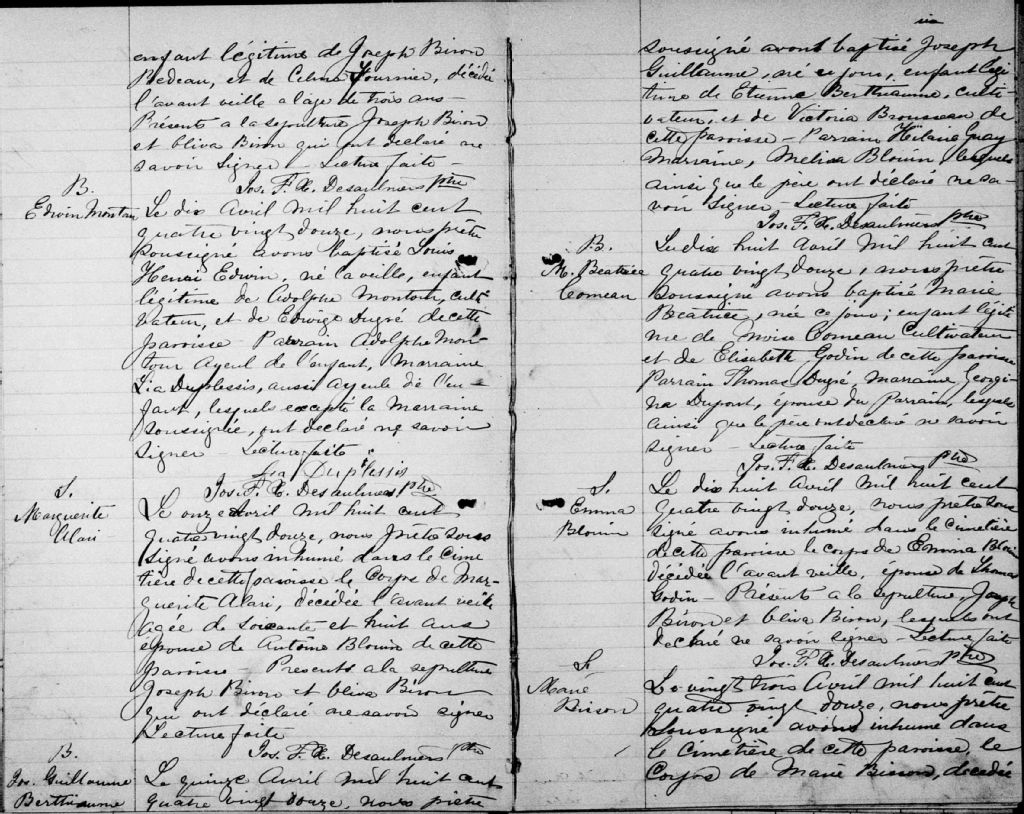 enfant légitime de Joseph Biron
Bedeau, et de Celina Fournier, décédé
l'avant veille a l'age de trois ans -
Présents a la sepulture Joseph Biron
et Oliva Biron qui ont declaré ne
savoir signer - Lecture faite -
Jos. F. X. Desaulniers ptre
B.
Edwin Montour
Le dix Avril mil huit cent
quatre vingt douze, nous prêtre
soussigné avons baptisé Louis
Henri Edwin, né la veille, enfant
légitime de Adolphe Montour, culti-
vateur, et de Edwige Dugré de cette
paroisse - Parrain Adolphe Mon-
tour Ayeul de l'enfant, Marraine
Lia Duplessis, aussi Ayeule de l'en-
fant, lesquels excepté la Marraine
soussignée, ont declaré ne savoir
signer - Lecture faite
Lia Duplessis
Jos. F. X. Desaulniers ptre
S.
Marguerite
Alari
Le onze Avril mil huit cent
quatre vingt douze, nous prêtre sous
signé avons inhumé dans le cime
tière de cette paroisse le corps de Mar-
guerite Alari, décédée l'avant veille
agée de soixante et huit ans
épouse de Antoine Blouin de cette
paroisse - Presents a la sepulture
Joseph Biron et Oliva Biron
qui ont déclaré ne savoir signer
Lecture faite
Jos. F. X. Desaulniers ptre
B.
Jos. Guillaume
Berthiaume
Le quinze Avril mil huit cent
quatre vingt douze, nous prêtre
soussigné avons baptisé Joseph
Guillaume, né ce jour, enfant légi
time de Etienne Berthiaume, culti-
vateur, et de Victoria Brousseau de
cette paroisse - Parrain Hilaire Guay
Marraine, Melina Blouin, lesquels
ainsi que le père ont déclaré ne sa-
voir signer - Lecture faite
Jos. F. X. Desaulniers ptre
B.
M. Beatrice
Comeau
Le dix huit Avril mil huit cent
quatre vingt douze, nous prêtre
soussigné avons baptisé Marie
Beatrice, née ce jour; enfant légiti
me de Moise Comeau Cultivateur
et de Elisabeth Godin de cette paroisse
Parrain Thomas Dugré, Marraine Georgi-
na Dupont, épouse du Parrain, lesquels
ainsi que le père ont déclaré ne savoir
signer - Lecture faite
Jos. F. X. Desaulniers ptre
S.
Emma
Blouin
Le dix huit Avril mil huit cent
quatre vingt douze, nous prêtre sous
signé avons inhumé dans le cimetière
de cette paroisse le corps de Emma Blouin
décédée l'avant veille, épouse de Thomas
Godin - Présents a la sepulture, Joseph
Biron et Oliva Biron, lesquels ont
declaré ne savoir signer - Lecture faite
Jos. F. X. Desaulniers ptre
S.
Marie
Bisson
Le vingt trois Avril mil huit cent
quatre vingt douze, nous prêtre
soussigné avons inhumé dans
le cimetière de cette paroisse, le
Corps de Marie Bisson, décédée